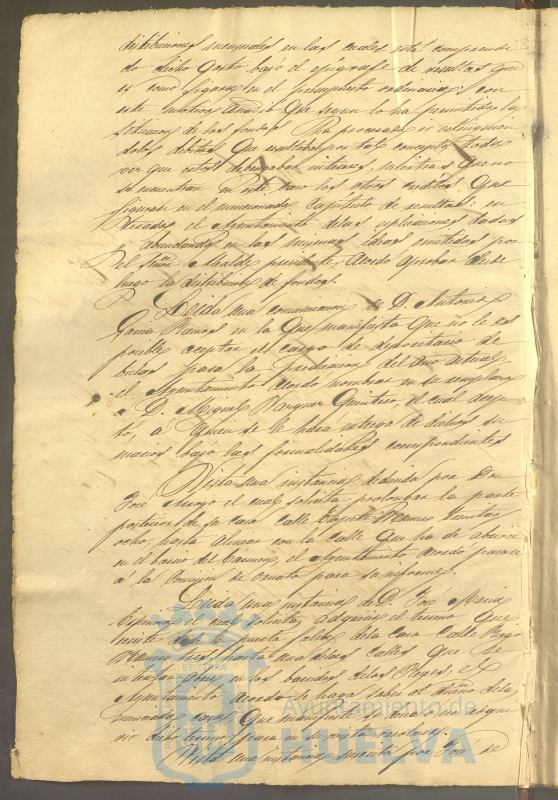 distribuciones mensuales en las cuales está comprendi
do dicho gasto bajo el epígrafe de resultas que
es como figura en el presupuesto ordinario; con
este motivo añadió que según lo ha permitido la
situacion de los fondos ha procurado ir extinguien
do los débitos que resultaban por tal concepto toda
vez que estos devengaban interes, mientras que no
se encuentran en este caso los otros creditos que
figuran en el mencionado capítulo de resultas: en
terado el Ayuntamiento de las esplicaciones dadas
y abundando en las mismas ideas emitidas por
el Señor Alcalde presidente, acordó aprobar desde
luego la distribucion de fondos.
Leida una comunicacion de D. Antonio
Garcia Ramos en la que manifiesta que no le es
posible aceptar el cargo de depositario de
bulas para la predicacion del año actual,
el Ayuntamiento acordó nombrar en su remplazo
a D. Miguel Vazquez Quintero, el cual acep
tó, a quien se le hará entrega de dichos su
marios bajo las formalidades correspondientes
Vista una instancia deducida por Don
José Mayo el cual solicita prolongar la parte
posterior de su casa Calle
ocho, hasta alinear con la calle que ha de abrirse
en el barrio del Carmen, el Ayuntamiento acordó pasase
á la Comision de Ornato para su informe.
Leida una instancia de D. José Maria
el cual solicita adquirir el terreno que
desde la puerta falsa de la casa Calle
tres, hasta una de las calles que se
en las de los Reyes, el
Ayuntamiento acordó se haga saber al dueño de la
casa, que manifieste si desea
dicho terreno para en su vista resolver.
Vista una instancia suscrita por José de
Ayuntamiento de
HUELVA